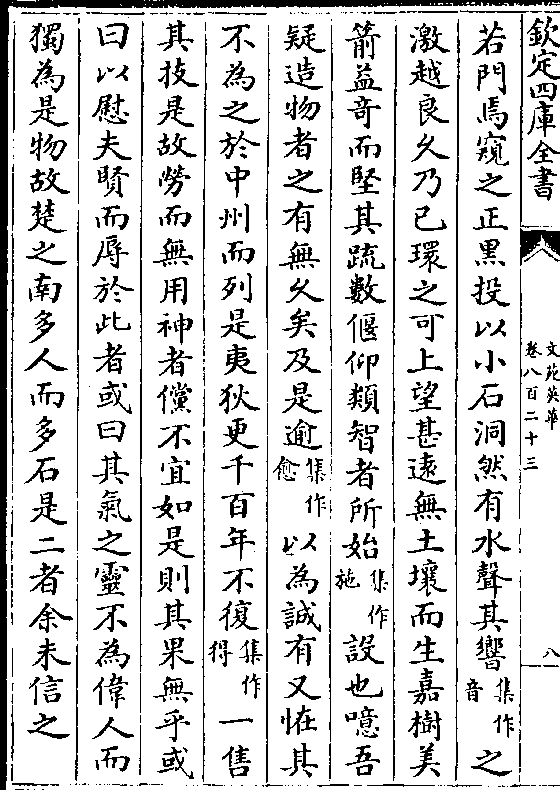 欽定四庫全書
文苑英華
卷八百二十三
八
若門焉窺之正黑投以小石洞然有水聲其響集作音之
激越良久乃已環之可上望甚逺無土壤而生嘉樹美
箭益竒而堅其疏數偃仰類智者所始集作施設也噫吾
疑造物者之有無久矣及是逾集作愈以為誠有又怪其
不為之於中州而列是夷狄更千百年不復集作得一售
其技是故勞而無用神者儻不宜如是則其果無乎或
曰以慰夫賢而辱於此者或曰其氣之靈不為偉人而
獨為是物故楚之南多人而多石是二者余未信之